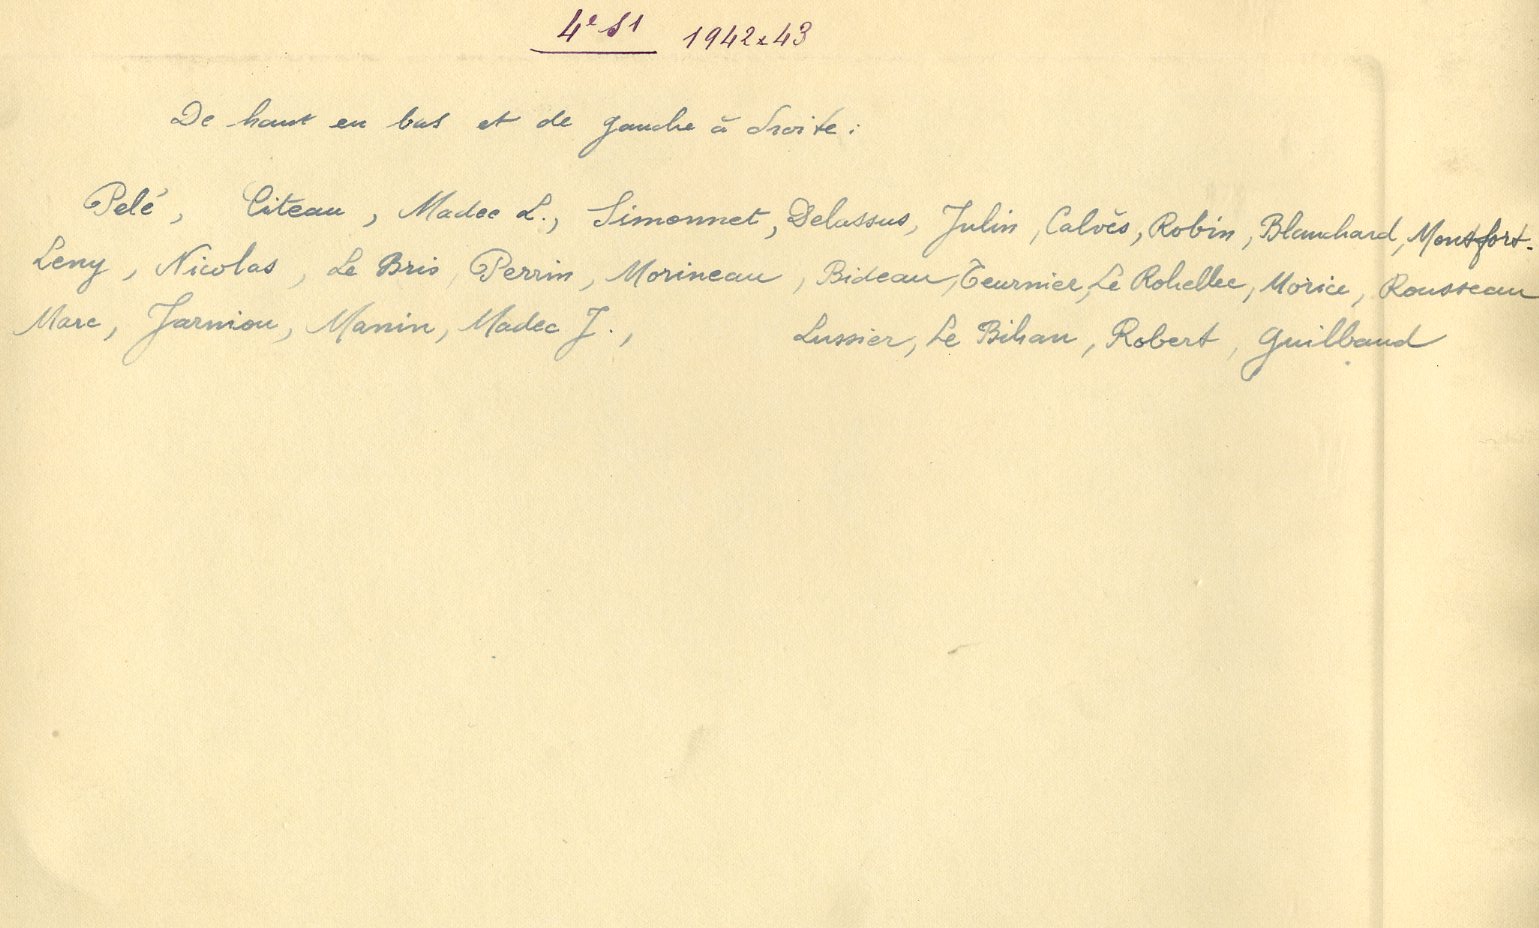 4e S1 1942-43
De haut en bas et de gauche à droite :
Pelé, Citeau, Madec L., Simonnet, Delassus, Julin, Calvès, Robin, Blanchard, Montfort.
Leny, Nicolas, Le Bris, Perrin, Morineau, Bideau, Teurnier, Le Rohellec, Morice, Rousseau
Marc, Jarniou, Manin, Madec J., Lussier, Le Bihan, Robert, Guilbaud